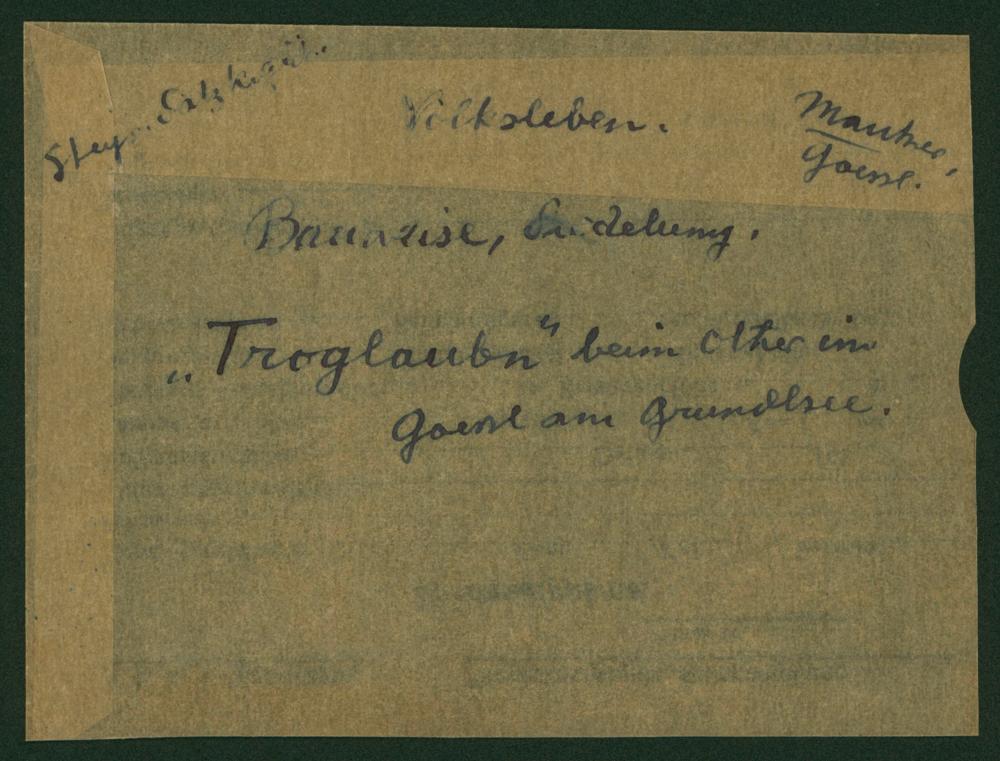 Steyr. Salzkgut.
Volksleben.
Mautner,
Goessl.
Bauweise, Siedelung.
„Troglaubn" beim Other in
Goessl am Grundlsee.